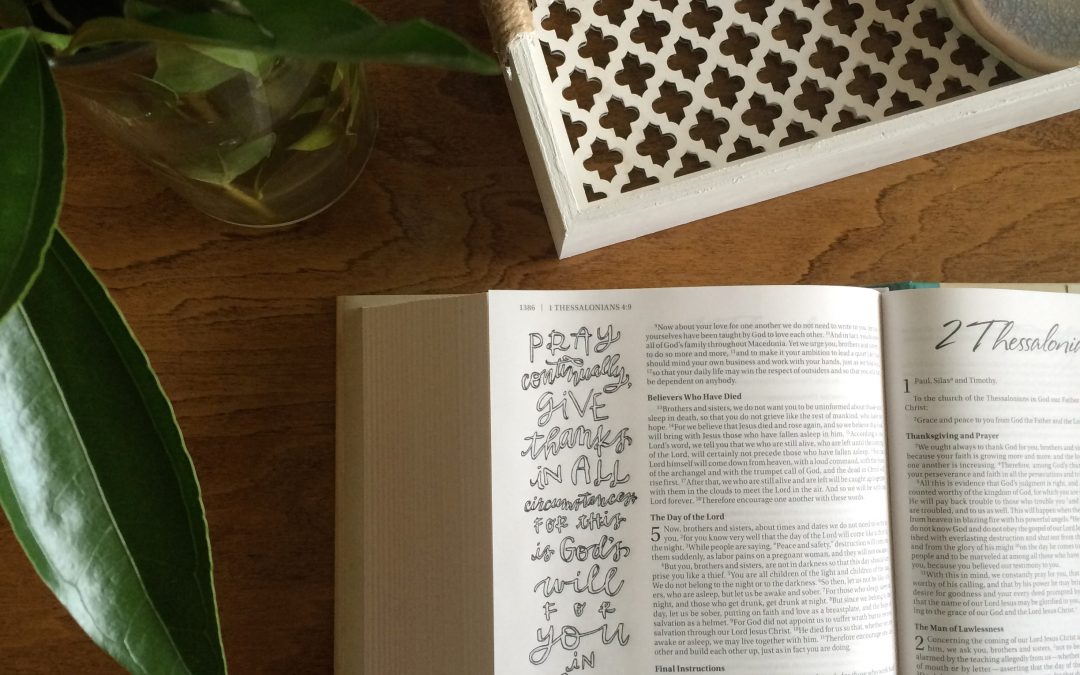 1386 | 1 THESSALONIANS 4:9
PRAY
continually,
GIVE
thanks
IN ALL
circumstances
FOR this
is God's
will
FOR
you
IN
9Now about your love for one another we do not need to write to
yourselves have been taught by God to love each other. 10And in fact,
all of God's family throughout Macedonia. Yet we urge you, brothers and
to do so more and more, 11and to make it your ambition to lead a quiet
should mind your own business and work with your hands, just as we
12so that your daily life may win the respect of outsiders and so that you will
be dependent on anybody.
Believers Who Have Died
13Brothers and sisters, we do not want you to be uninformed about those
sleep in death, so that you do not grieve like the rest of mankind, who have
hope. 14For we believe that Jesus died and rose again, and so we believe that
will bring with Jesus those who have fallen asleep in him. 15According
Lord's word, we tell you that we who are still alive, who are left until the
of the Lord, will certainly not precede those who have fallen asleep.
Lord himself will come down from heaven, with a loud command, with the
of the archangel and with the trumpet call of God, and the dead in Christ
rise first. 17After that, we who are still alive and are left will be caught up
with them in the clouds to meet the Lord in the air. And so we will be with
Lord forever. 18Therefore encourage one another with these words.
The Day of the Lord
5 Now, brothers and sisters, about times and dates we do not need to write
you, 2for you know very well that the day of the Lord will come like a
the night. 3While people are saying, "Peace and safety," destruction will
them suddenly, as labor pains on a pregnant woman, and they will not
4But you, brothers and sisters, are not in darkness so that this day should
prise you like a thief. 5You are all children of the light and children of the
We do not belong to the night or to the darkness. 6So then, let us not be like
ers, who are asleep, but let us be awake and sober. 7For those who sleep,
night, and those who get drunk, get drunk at night. 8But since we belong
day, let us be sober, putting on faith and love as a breastplate, and the
salvation as a helmet. 9For God did not appoint us to suffer wrath but to
salvation through our Lord Jesus Christ. 10He died for us so that, whether
awake or asleep, we may live together with him. 11Therefore encourage
and build each other up, just as in fact you are doing.
Final Instructions
2 Thessalonia
1 Paul, Silasa and Timothy,
To the church of the Thessalonians in God our Father
Christ:
2Grace and peace to you from God the Father and the
Thanksgiving and Prayer
3We ought always to thank God for you, brothers and
because your faith is growing more and more, and the
one another is increasing. 4Therefore, among God's
your perseverance and faith in all the persecutions and
5All this is evidence that God's judgment is right, and
counted worthy of the kingdom of God, for which you are
He will pay back trouble to those who trouble you 7and
are troubled, and to us as well. This will happen when the
from heaven in blazing fire with his powerful angels. 8He
do not know God and do not obey the gospel of our Lord
ished with everlasting destruction and shut out from the
and from the glory of his might 10on the day he comes to
people and to be marveled at among all those who have
you, because you believed our testimony to you.
11With this in mind, we constantly pray for you, that
worthy of his calling, and that by his power he may bring
desire for goodness and your every deed prompted by
that the name of our Lord Jesus may be glorified in you,
ing to the grace of our God and the Lord Jesus Christ.
The Man of Lawlessness
2 Concerning the coming of our Lord Jesus Christ
him, we ask you, brothers and sisters, 2not to be
alarmed by the teaching allegedly from us—whether
of mouth or by letter—asserting that the day of the